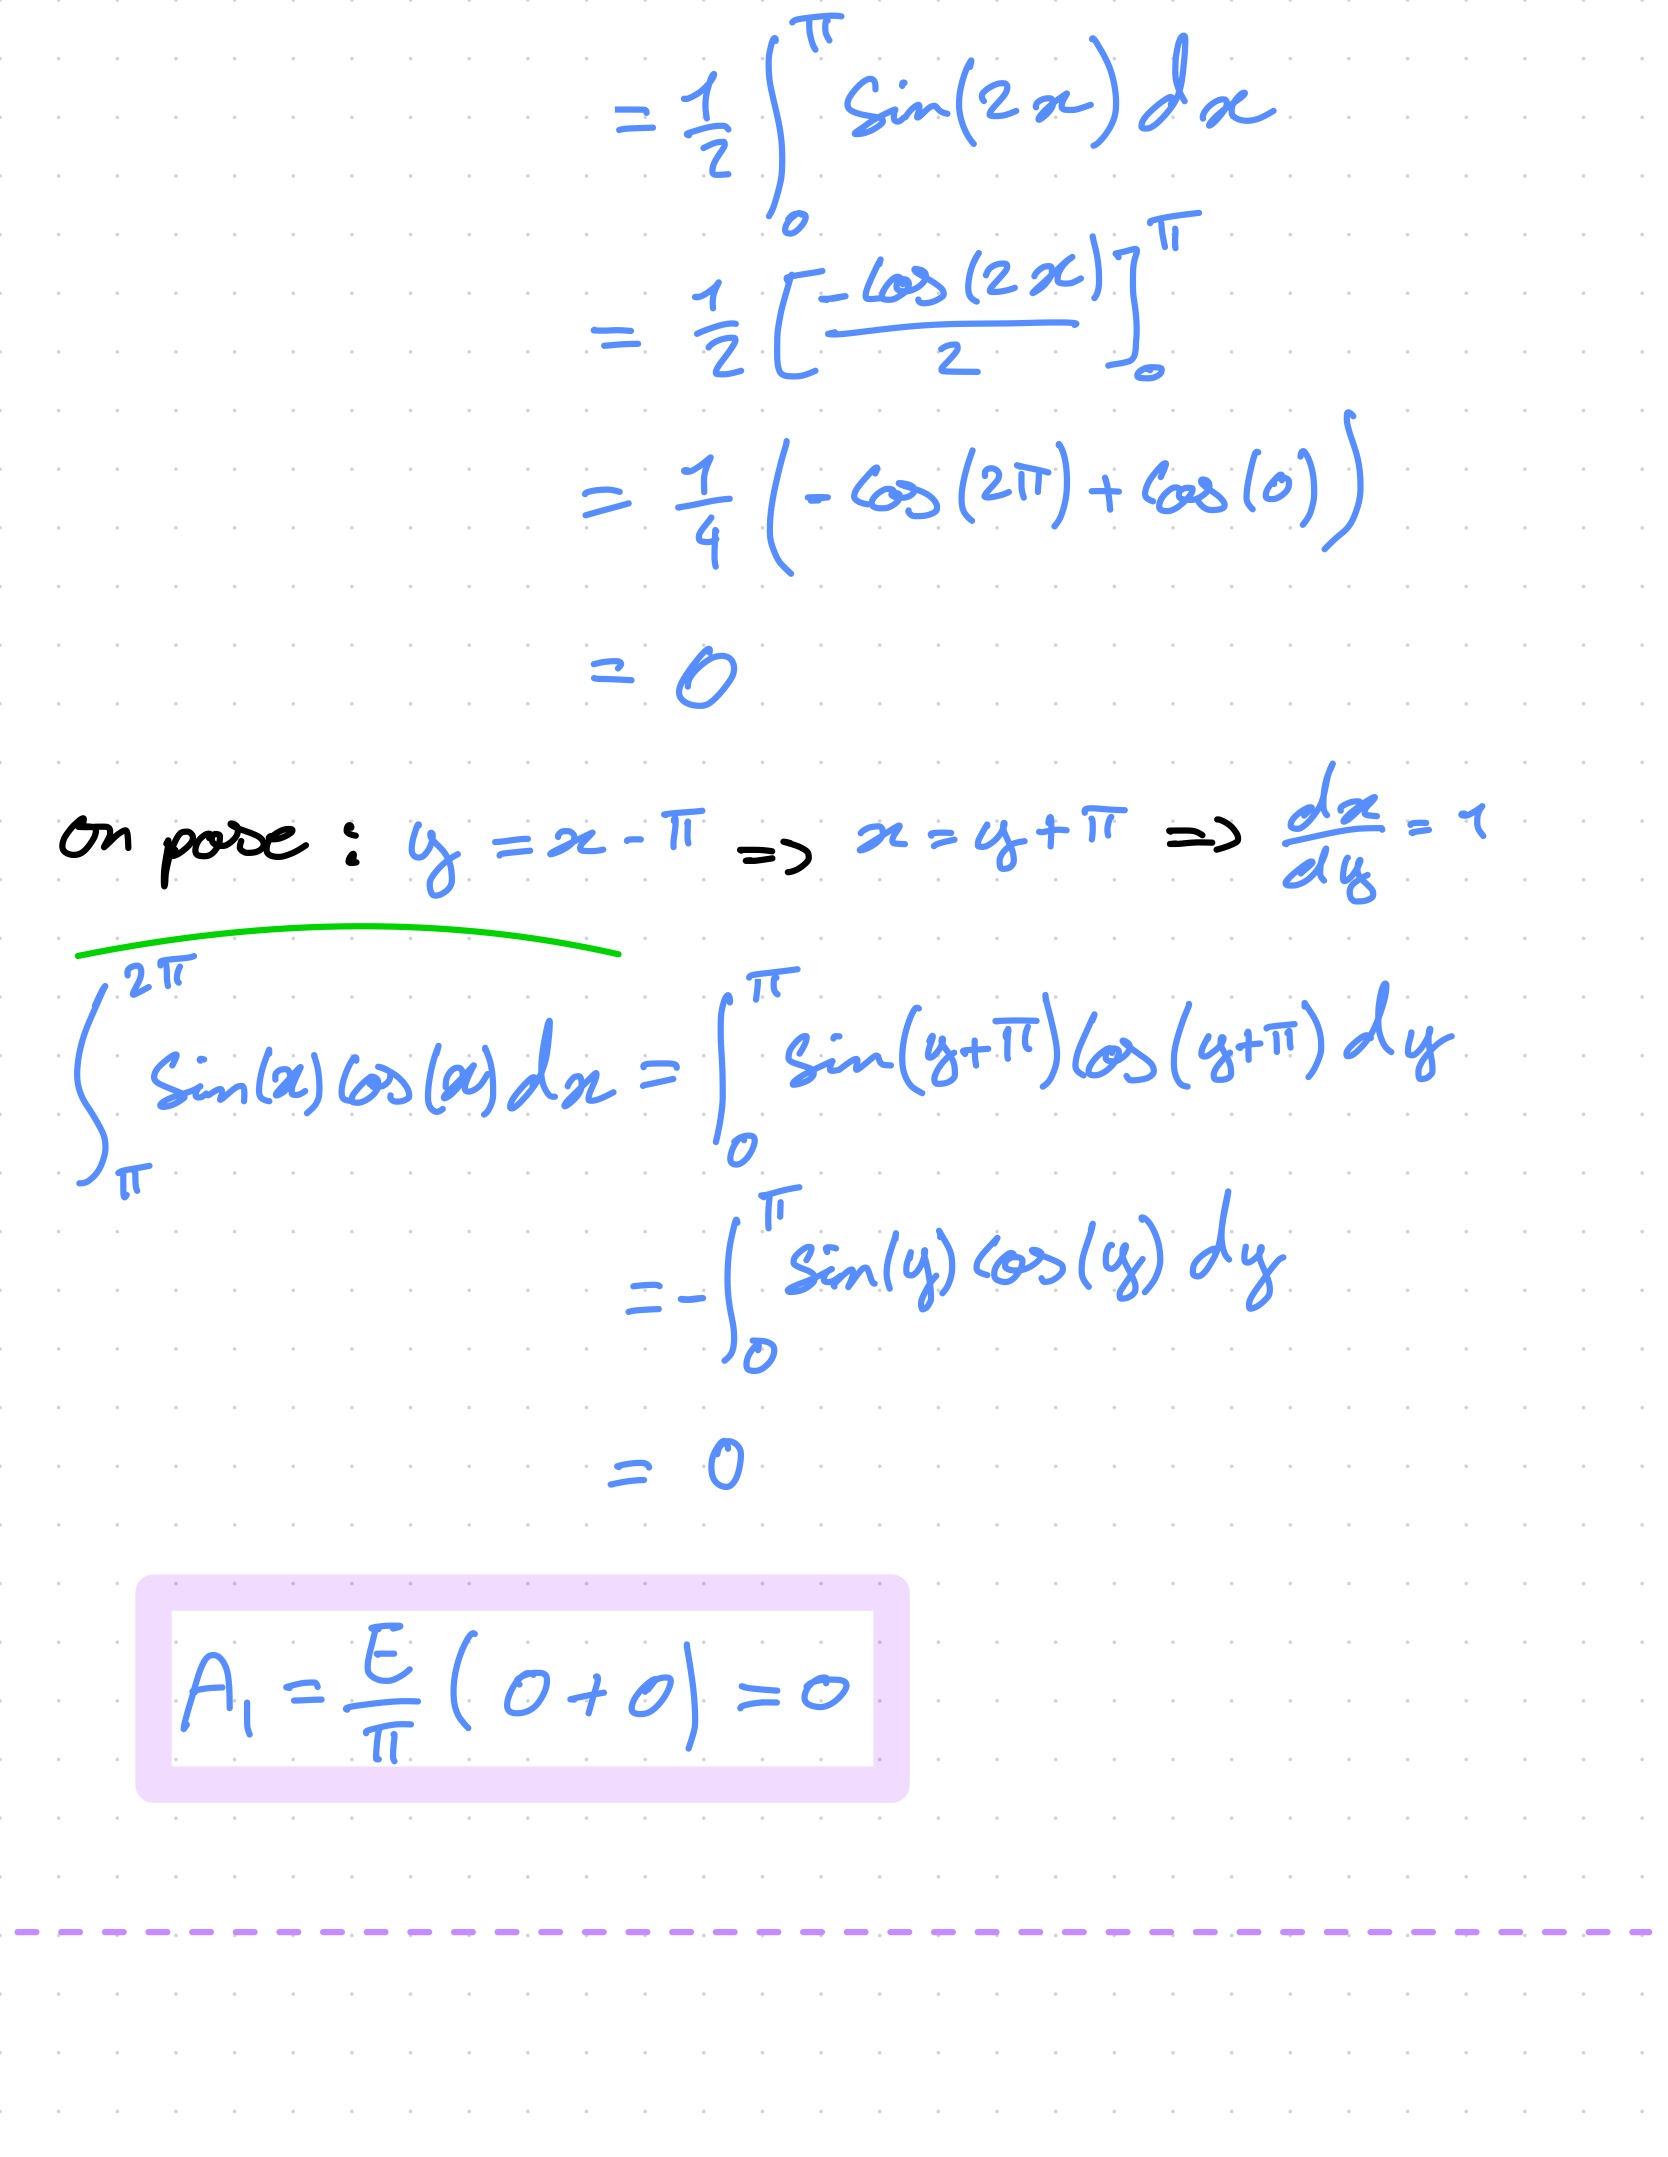 = 1/2 ∫₀^π sin(2x) dx
= 1/2 [-cos(2x)/2]₀^π
= 1/4 (-cos(2π) + cos(0))
= 0
on pose : y = x - π => x = y + π => dx/dy = 1
∫_π^2π sin(x) cos(x) dx = ∫₀^π sin(y+π) cos(y+π) dy
= - ∫₀^π sin(y) cos(y) dy
= 0
A₁ = E/π (0 + 0) = 0